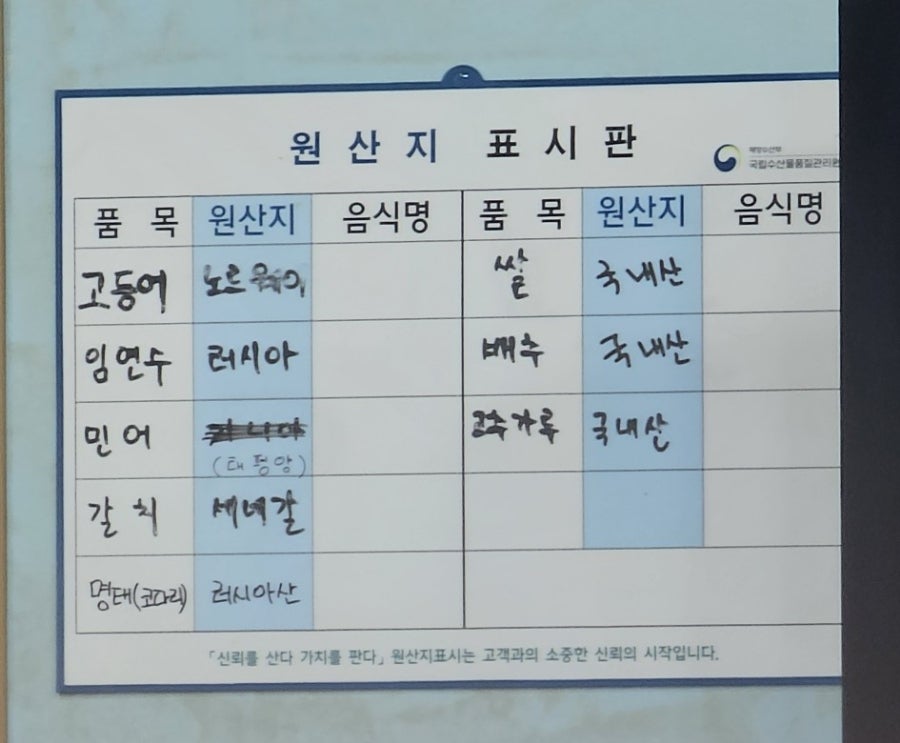 원산지 표시판
해양수산부
국립수산물품질관리원
품목 원산지 음식명 품목 원산지 음식명
고등어 노르웨이 쌀 국내산
임연수 러시아 배추 국내산
민어 (태평양) 고추가루 국내산
갈치 세네갈
명태(코다리) 러시아산
「신뢰를 산다 가치를 판다」 원산지표시는 고객과의 소중한 신뢰의 시작입니다.